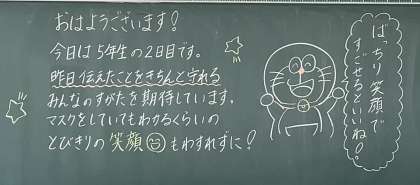 おはようございます!
今日は5年生の2日目です。
昨日伝えたことをきちんと守れる
みんなのすがたを期待しています。
マスクをしていてもわかるくらいの
とびきりの笑顔もわすれずに!
ばっちり笑顔で
すごせるといいね!